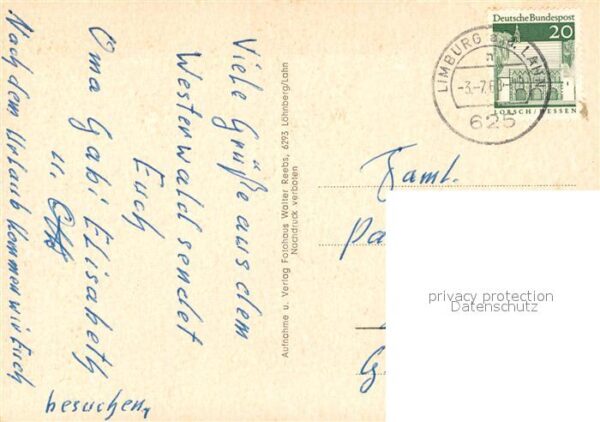 Viele Grüße aus dem
Westerwald sendet
Euch
Oma Gabi Elisabeth
u.
Nach dem Urlaub kommen wir Euch
besuchen,
Aufnahme u. Verlag Fotohaus Walter Reebs, 6293 Löhnberg/Lahn
Nachdruck verboten
Deutsche Bundespost
20
LORSCH/HESSEN
LIMBURG a.d. LAHN
625
Faml.
privacy protection
Datenschutz